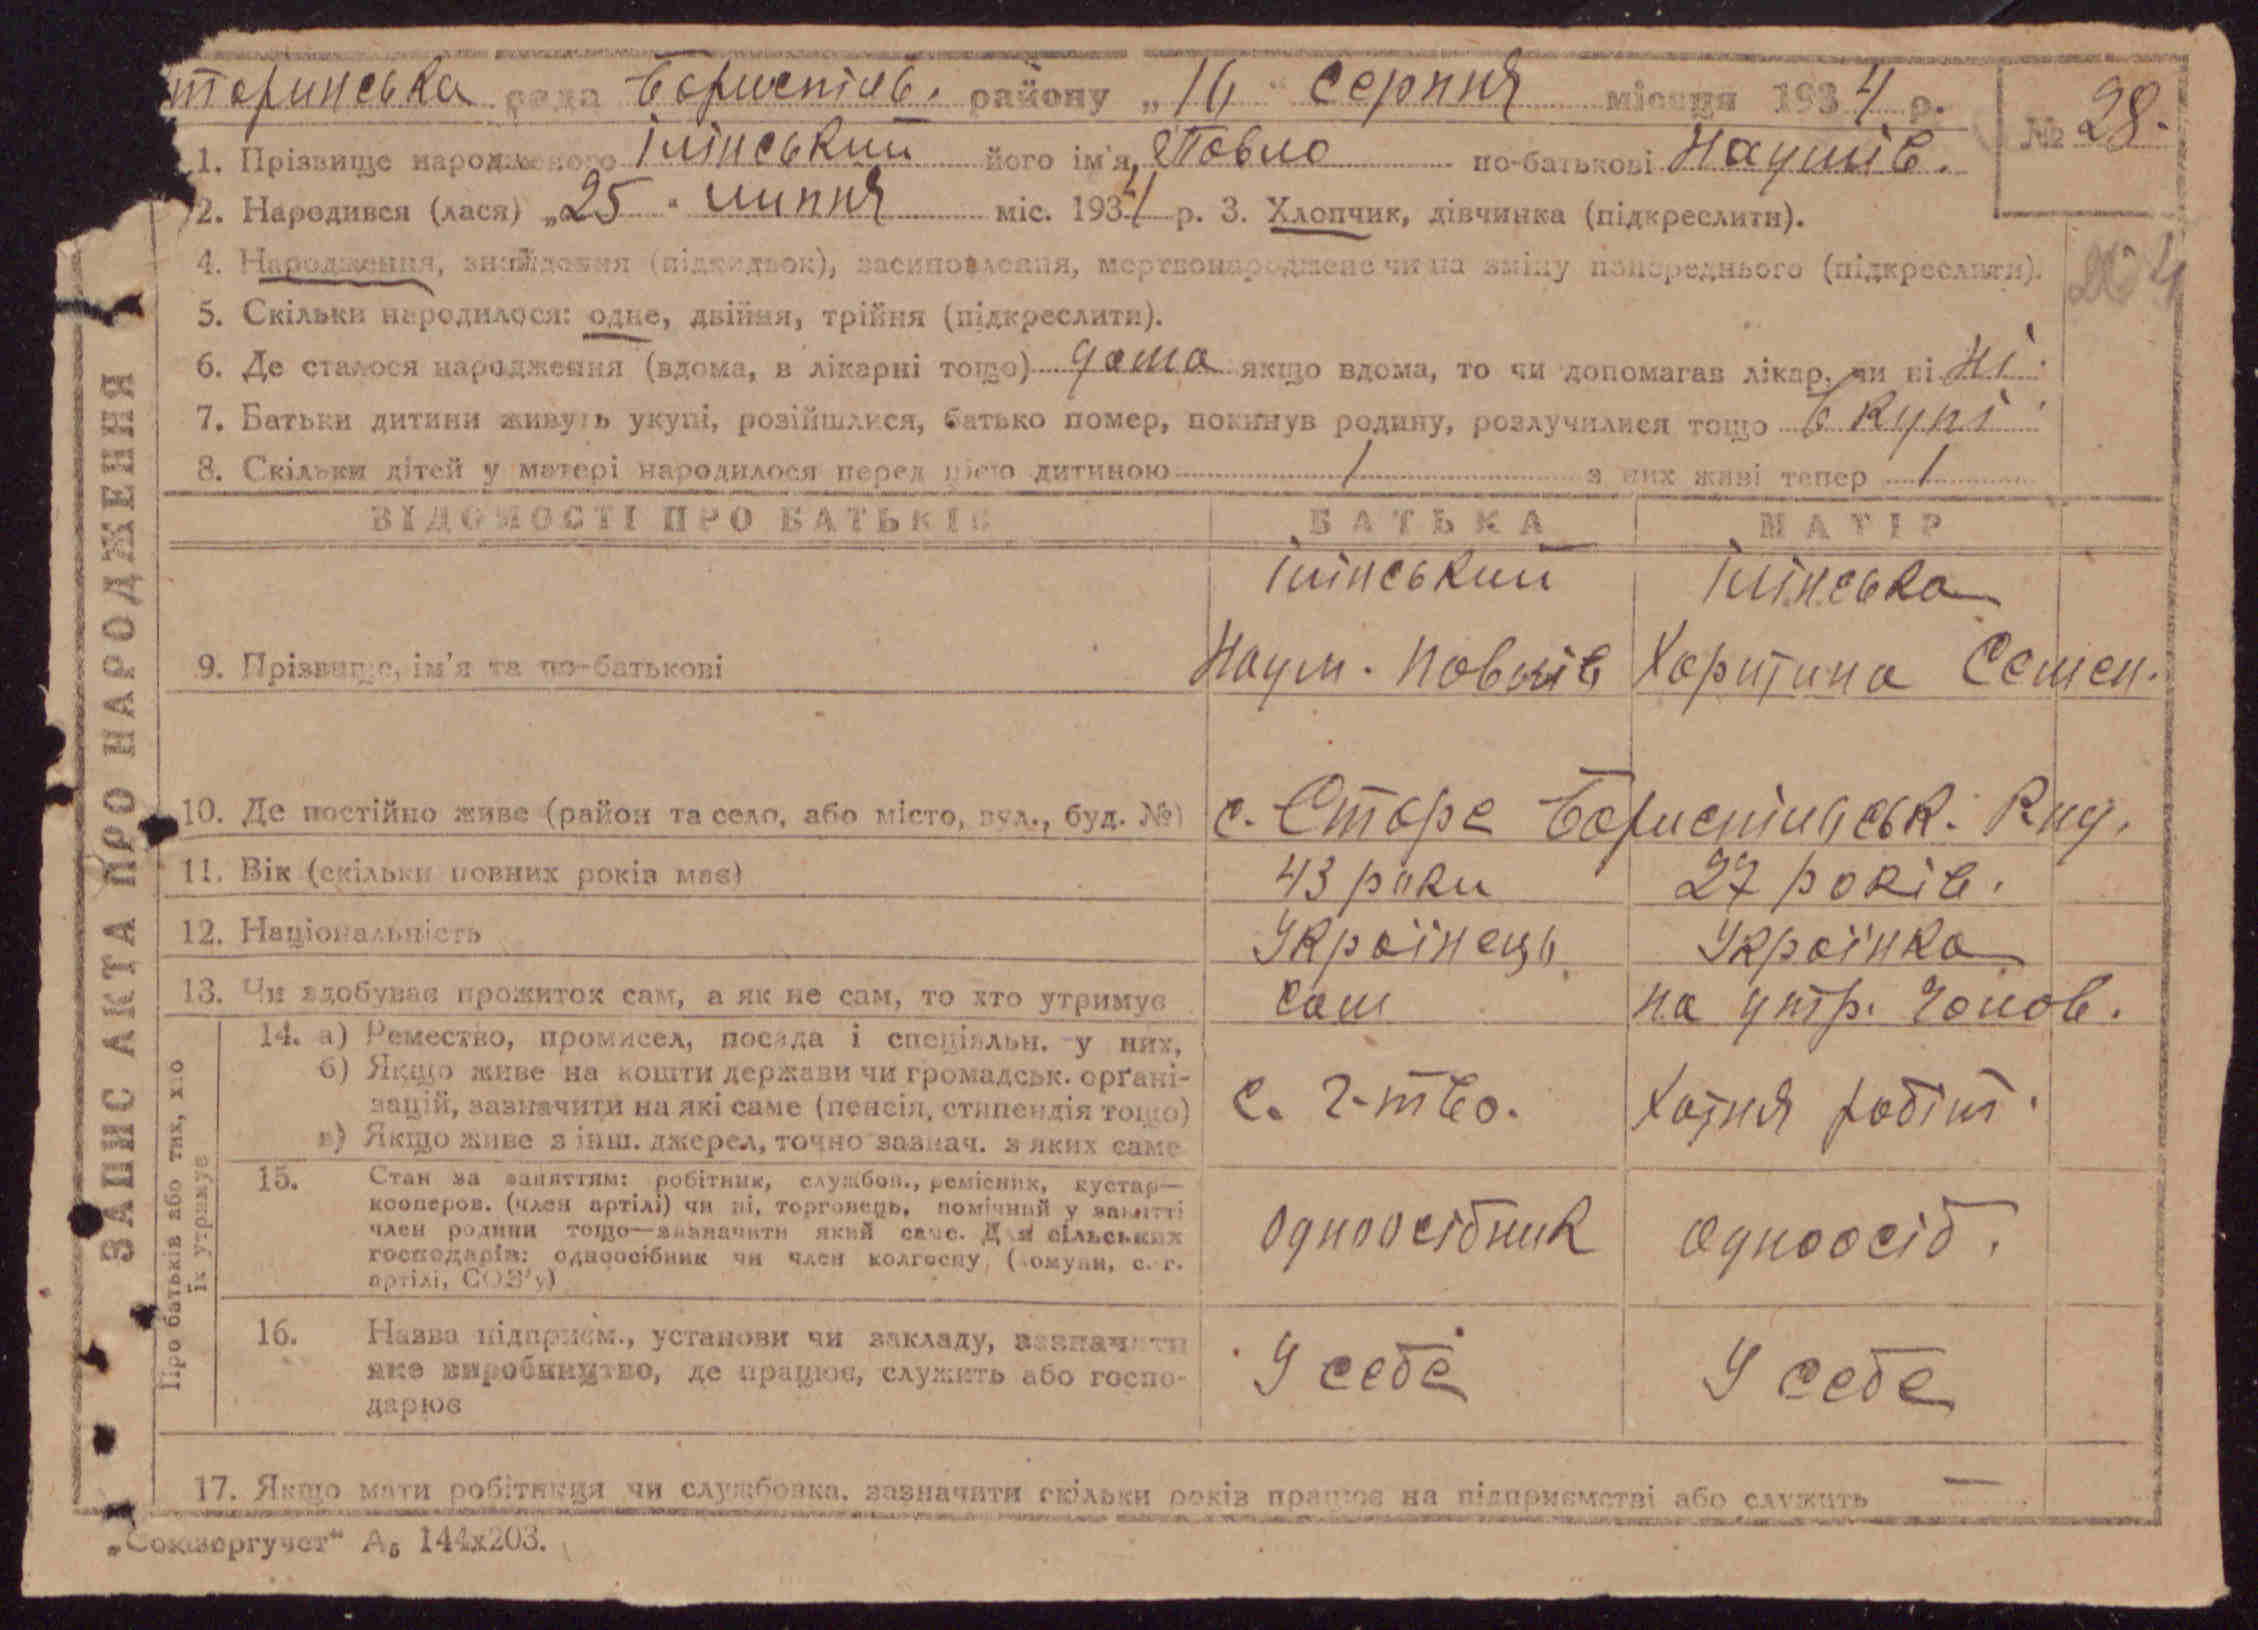 торинська рада Бориспіль. району „16" серпня місяця 1934 р.
№ 28.
1. Прізвище народженого Ілінський його ім'я Павло по-батькові Наумів.
2. Народився (лася) „25" липня міс. 1934 р. 3. Хлопчик, дівчинка (підкреслити).
4. Народження, знайдення (підкидьок), засиновлення, мертвонароджене чи на зміну попереднього (підкреслити).
5. Скільки народилося: одне, двійня, трійня (підкреслити).
6. Де сталося народження (вдома, в лікарні тощо) дома якщо вдома, то чи допомагав лікар, чи ні Ні.
7. Батьки дитини живуть укупі, розійшлися, батько помер, покинув родину, розлучилися тощо вкупі
8. Скільки дітей у матері народилося перед цією дитиною 1 з них живі тепер 1
ЗАПИС АКТА ПРО НАРОДЖЕННЯ
ВІДОМОСТІ ПРО БАТЬКІВ БАТЬКА МАТІР
Ілінський Ілінська
9. Прізвище, ім'я та по-батькові Наум. Павлів Харитина Семен.
10. Де постійно живе (район та село, або місто, вул., буд. №) с. Старе Бориспільськ.
11. Вік (скільки повних років має) 43 роки 27 років.
12. Національність Українець Українка
13. Чи здобуває прожиток сам, а як не сам, то хто утримує сам на утр. чолов.
Про батьків або тих, хто їх утримує
14. а) Ремество, промисел, посада і спеціяльн. у них,
б) Якщо живе на кошти держави чи громадськ. орґані-
зацій, зазначити на які саме (пенсія, стипендія тощо) с. г-тво. Хатня робіт.
в) Якщо живе з інш. джерел, точно зазнач. з яких саме
15. Стан за заняттям: робітник, службов., ремісник, кустар—
кооперов. (член артілі) чи ні, торговець, помічний у занятті
член родини тощо—зазначити який саме. Для сільських
господарів: одноосібник чи член колгоспу, (комуни, с. г.
артілі, СОЗ'у)
одноосібник одноосіб.
16. Назва підприєм., установи чи закладу, зазначити
яке виробництво, де працює, служить або госпо-
дарює
У себе У себе
17. Якщо мати робітниця чи службовка, зазначити скільки років працює на підприємстві або служить —
„Союзоргучет" А5 144х203.